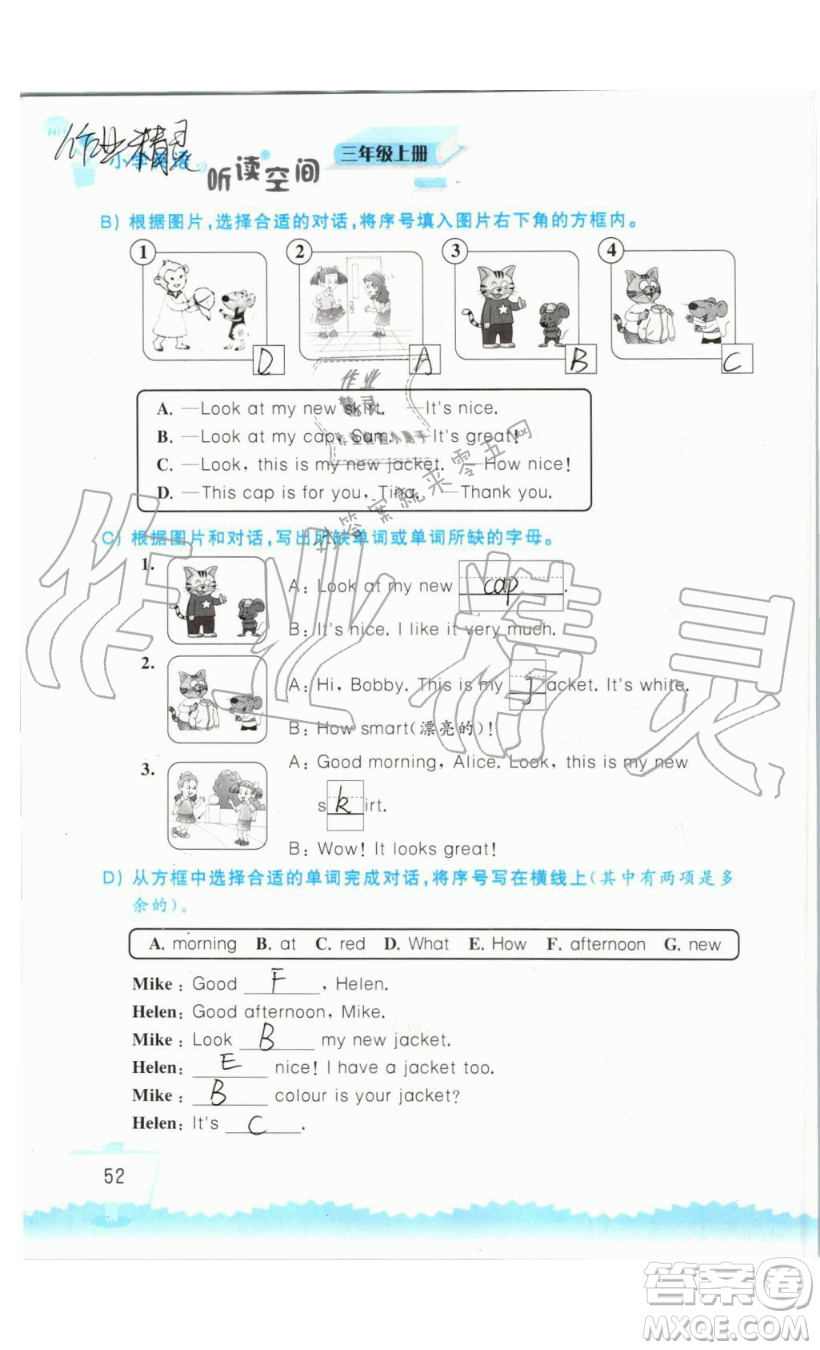 Hi!
作业精灵
小学英语
听读空间
三年级上册
B) 根据图片,选择合适的对话,将序号填入图片右下角的方框内。
1 2 3 4
D A B C
A. —Look at my new skirt. —It's nice.
B. —Look at my cap, Sam. —It's great!
C. —Look, this is my new jacket. —How nice!
D. —This cap is for you, Tina. —Thank you.
作业
精灵
作业检查小助手
找答案就来零五网
C) 根据图片和对话,写出所缺单词或单词所缺的字母。
1. A: Look at my new cap.
B: It's nice. I like it very much.
2. A: Hi, Bobby. This is my jacket. It's white.
B: How smart(漂亮的)!
3. A: Good morning, Alice. Look, this is my new
skirt.
B: Wow! It looks great!
作业精灵
D) 从方框中选择合适的单词完成对话,将序号写在横线上(其中有两项是多
余的)。
A. morning B. at C. red D. What E. How F. afternoon G. new
Mike: Good F, Helen.
Helen: Good afternoon, Mike.
Mike: Look B my new jacket.
Helen: E nice! I have a jacket too.
Mike: B colour is your jacket?
Helen: It's C.
52
答案圈
MXQE.COM